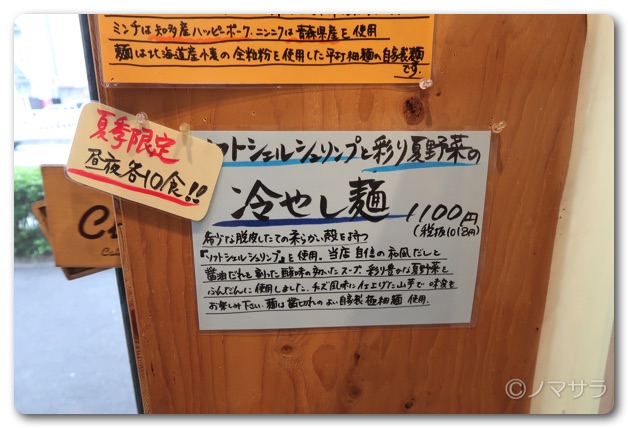 ミンチは知多産ハッピーポーク、ニンニクは青森県産を使用
麺は北海道産小麦の全粒粉を使用した平打細麺の自家製麺
です。
夏季限定
昼夜各10食!!
ソフトシェルシュリンプと彩り夏野菜の
冷やし麺 1100円
(税抜1018円)
希少な脱皮したての柔らかい殻を持つ
『ソフトシェルシュリンプ』を使用。当店自信の和風だしと
醤油だれを割った酸味の効いたスープ。彩り豊かな夏野菜を
ふんだんに使用しました。チーズ風味に仕上げた山芋で味変を
お楽しみ下さい。麺は歯切れのよい自家製極細麺使用。
©ノマサラ